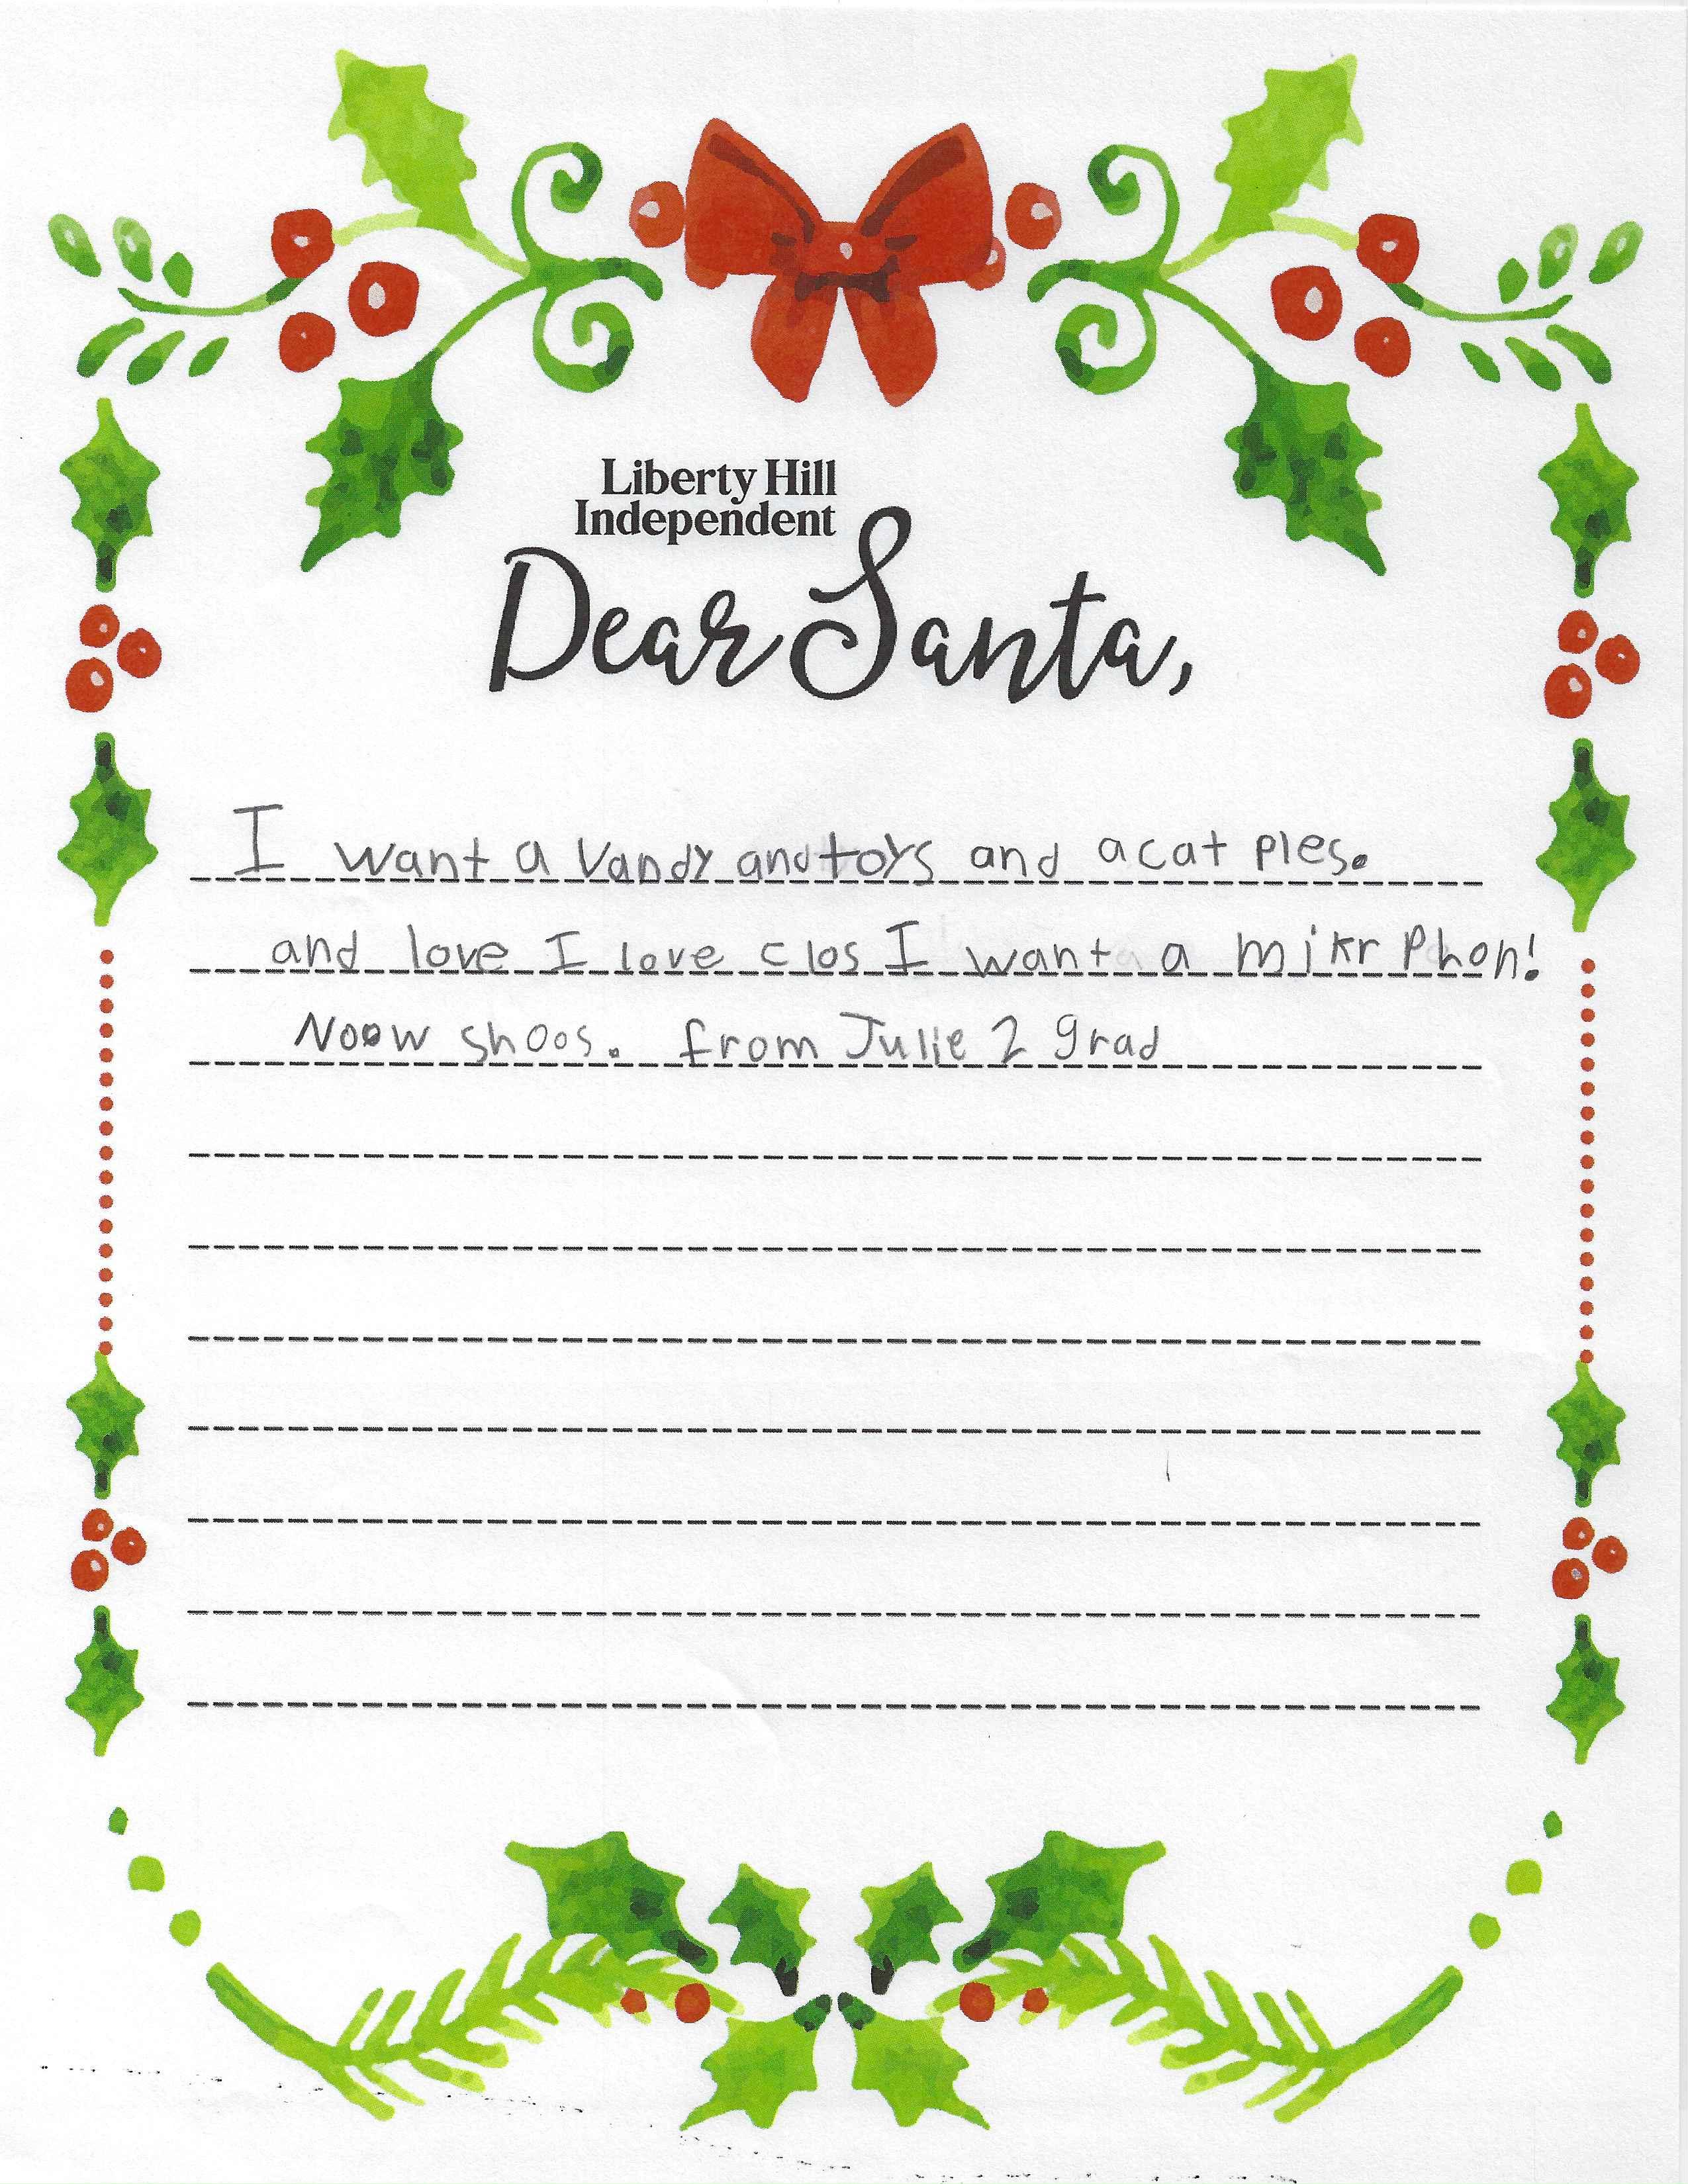 Liberty Hill
Independent
Dear Santa,
I want a Vandy and toys and a cat ples.
and love I love clos I want a mikr Phon!
Noow shoos. from Julie 2 grad